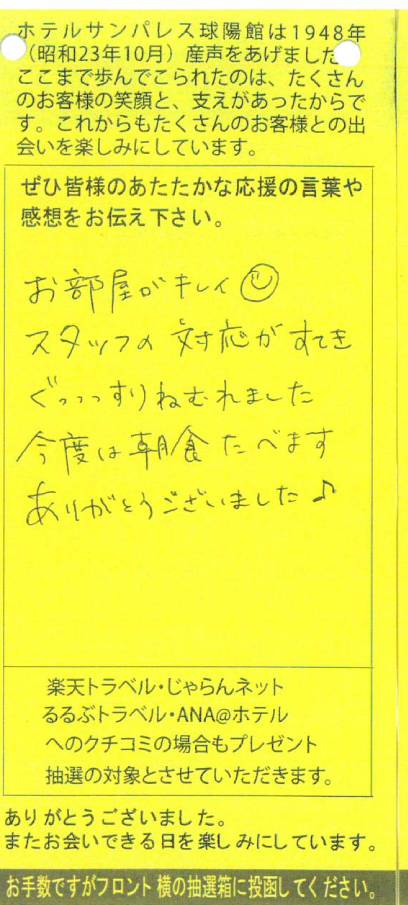 ホテルサンパレス球陽館は1948年
(昭和23年10月)産声をあげました
ここまで歩んでこられたのは、たくさん
のお客様の笑顔と、支えがあったからで
す。これからもたくさんのお客様との出
会いを楽しみにしています。
ぜひ皆様のあたたかな応援の言葉や
感想をお伝え下さい。
お部屋がキレイ☺
スタッフの対応がすてき
ぐっっっすりねむれました
今度は朝食たべます
ありがとうございました♪
楽天トラベル・じゃらんネット
るるぶトラベル・ANA@ホテル
へのクチコミの場合もプレゼント
抽選の対象とさせていただきます。
ありがとうございました。
またお会いできる日を楽しみにしています。
お手数ですがフロント横の抽選箱に投函してください。